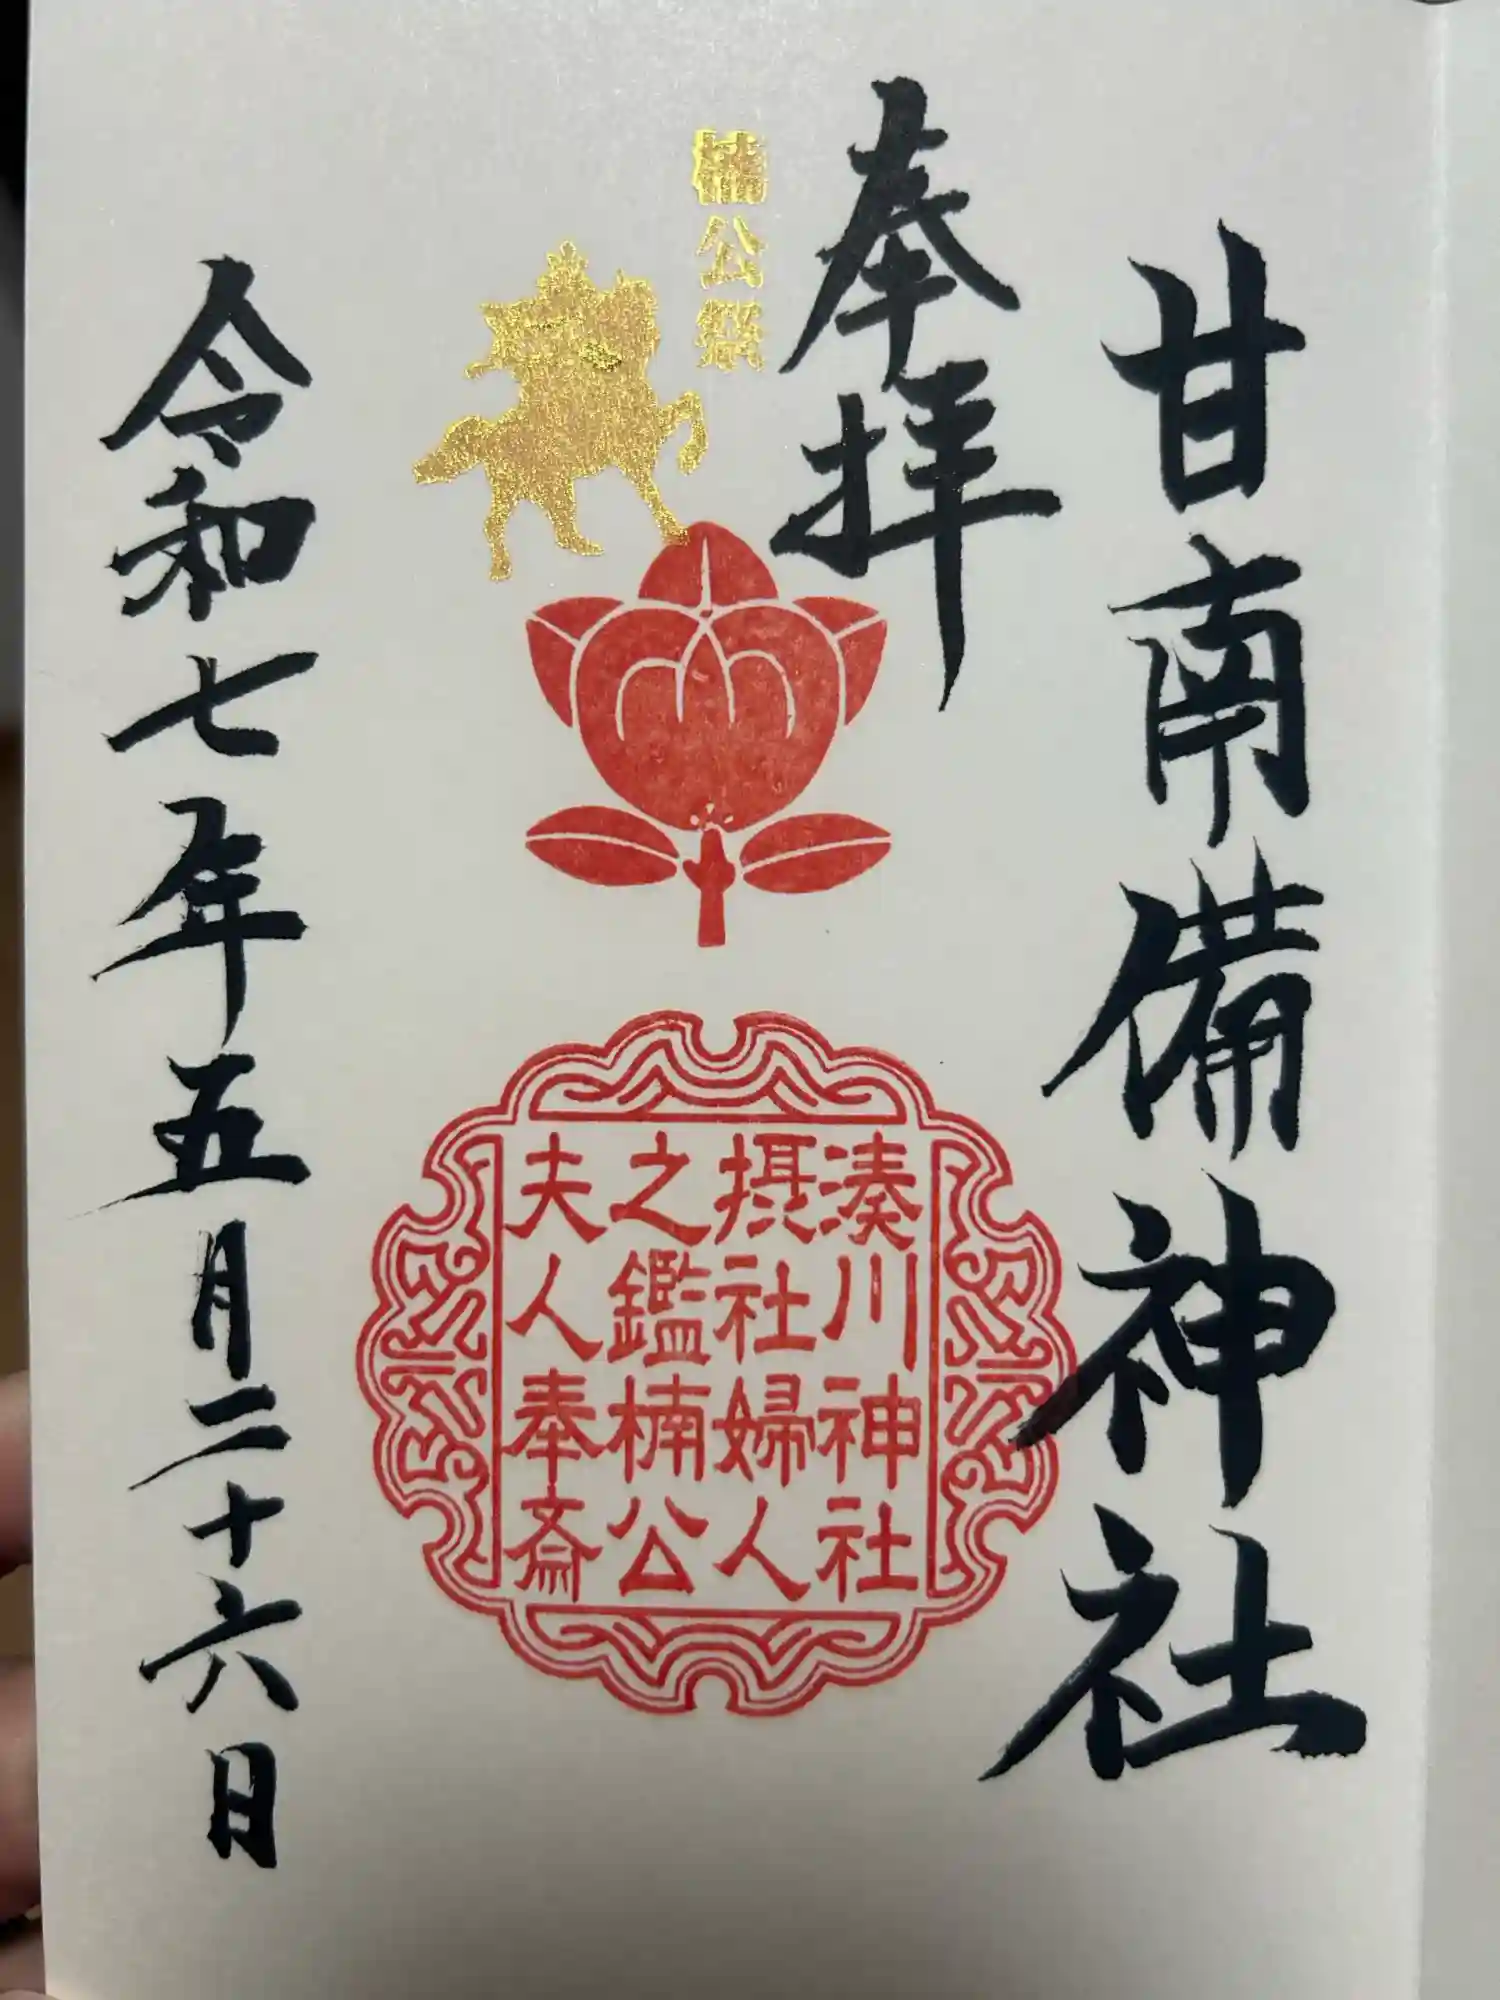 甘南備神社
奉拝
楠公祭
湊川神社
摂社婦人
之鑑楠公
夫人奉斎
令和七年五月二十六日